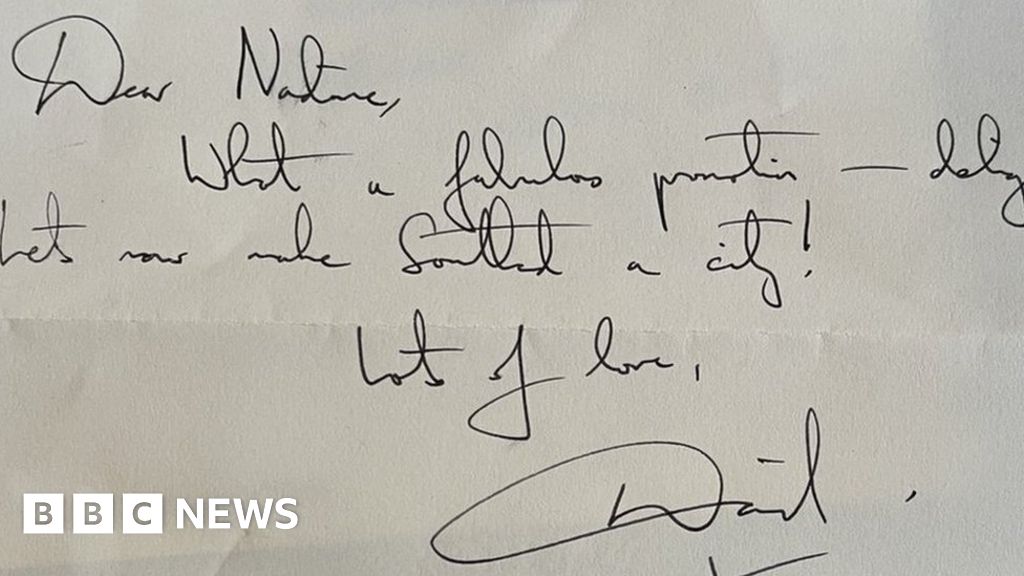 Dear Nadine,
What a fabulous promotion — delig
Let's now make Southend a city!
Lots of love,
David
BBC NEWS